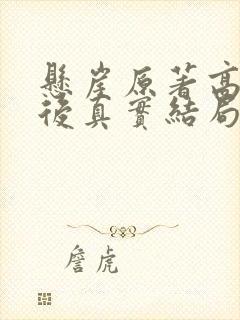 懸崖原著高
後真實結局
詹虎